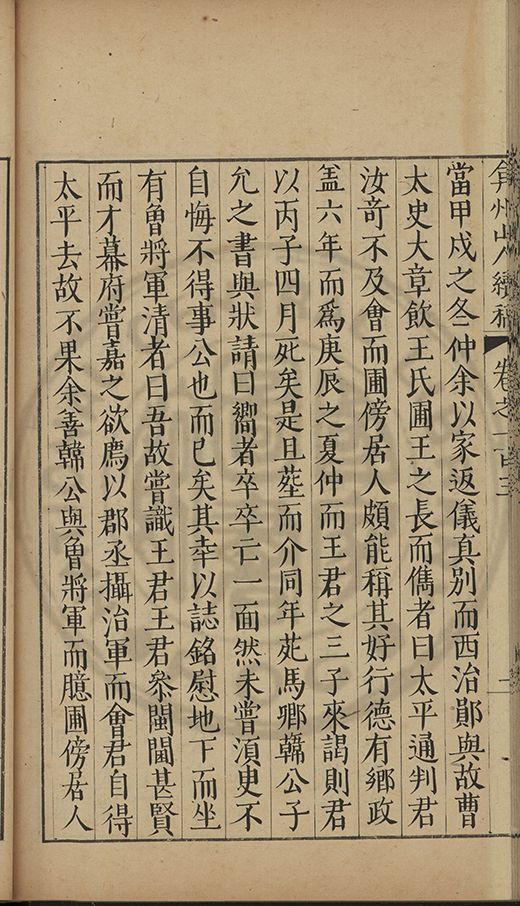 弇州山人續稿 卷之一百三 一
當甲戍之冬仲余以家返儀真別而西治鄖與故曹
太史大章飲王氏圃王之長而儁者曰太平通判君
汝竒不及會而圃傍居人頗能稱其好行德有鄉政
葢六年而爲庚辰之夏仲而王君之三子來謁則君
以丙子四月死矣是且塟而介同年苑馬卿韓公子
允之書與狀請曰嚮者卒卒亡一面然未嘗湏史不
自悔不得事公也而已矣其幸以誌銘慰地下而坐
有魯將軍清者曰吾故嘗識王君王君叅閩閫甚賢
而才幕府嘗嘉之欲薦以郡丞攝治軍而會君自得
太平去故不果余善韓公與魯將軍而臆圃傍居人